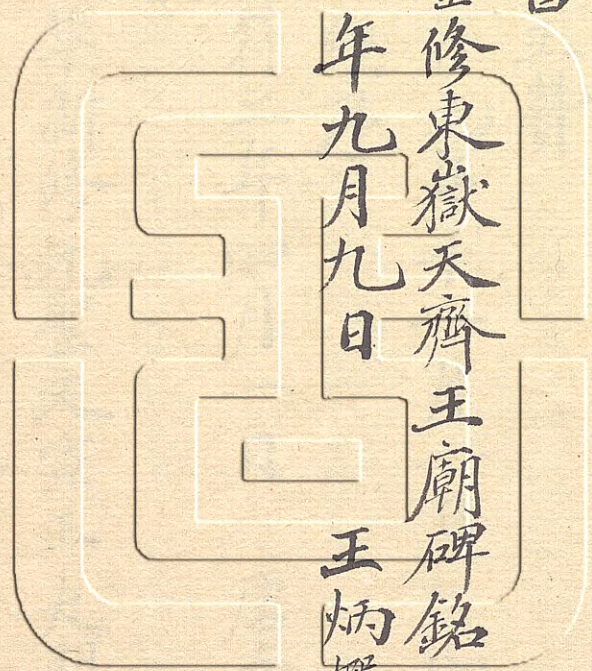 修東嶽天齊王廟碑銘
年九月九日 王炳